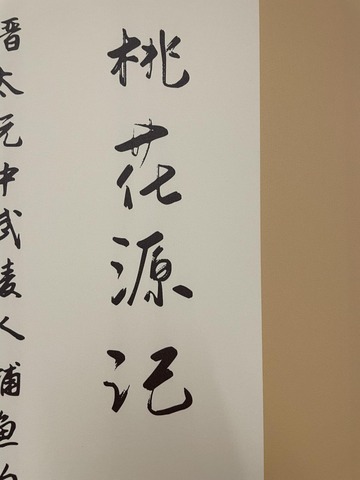 桃花源记
晋太元中武陵人捕鱼